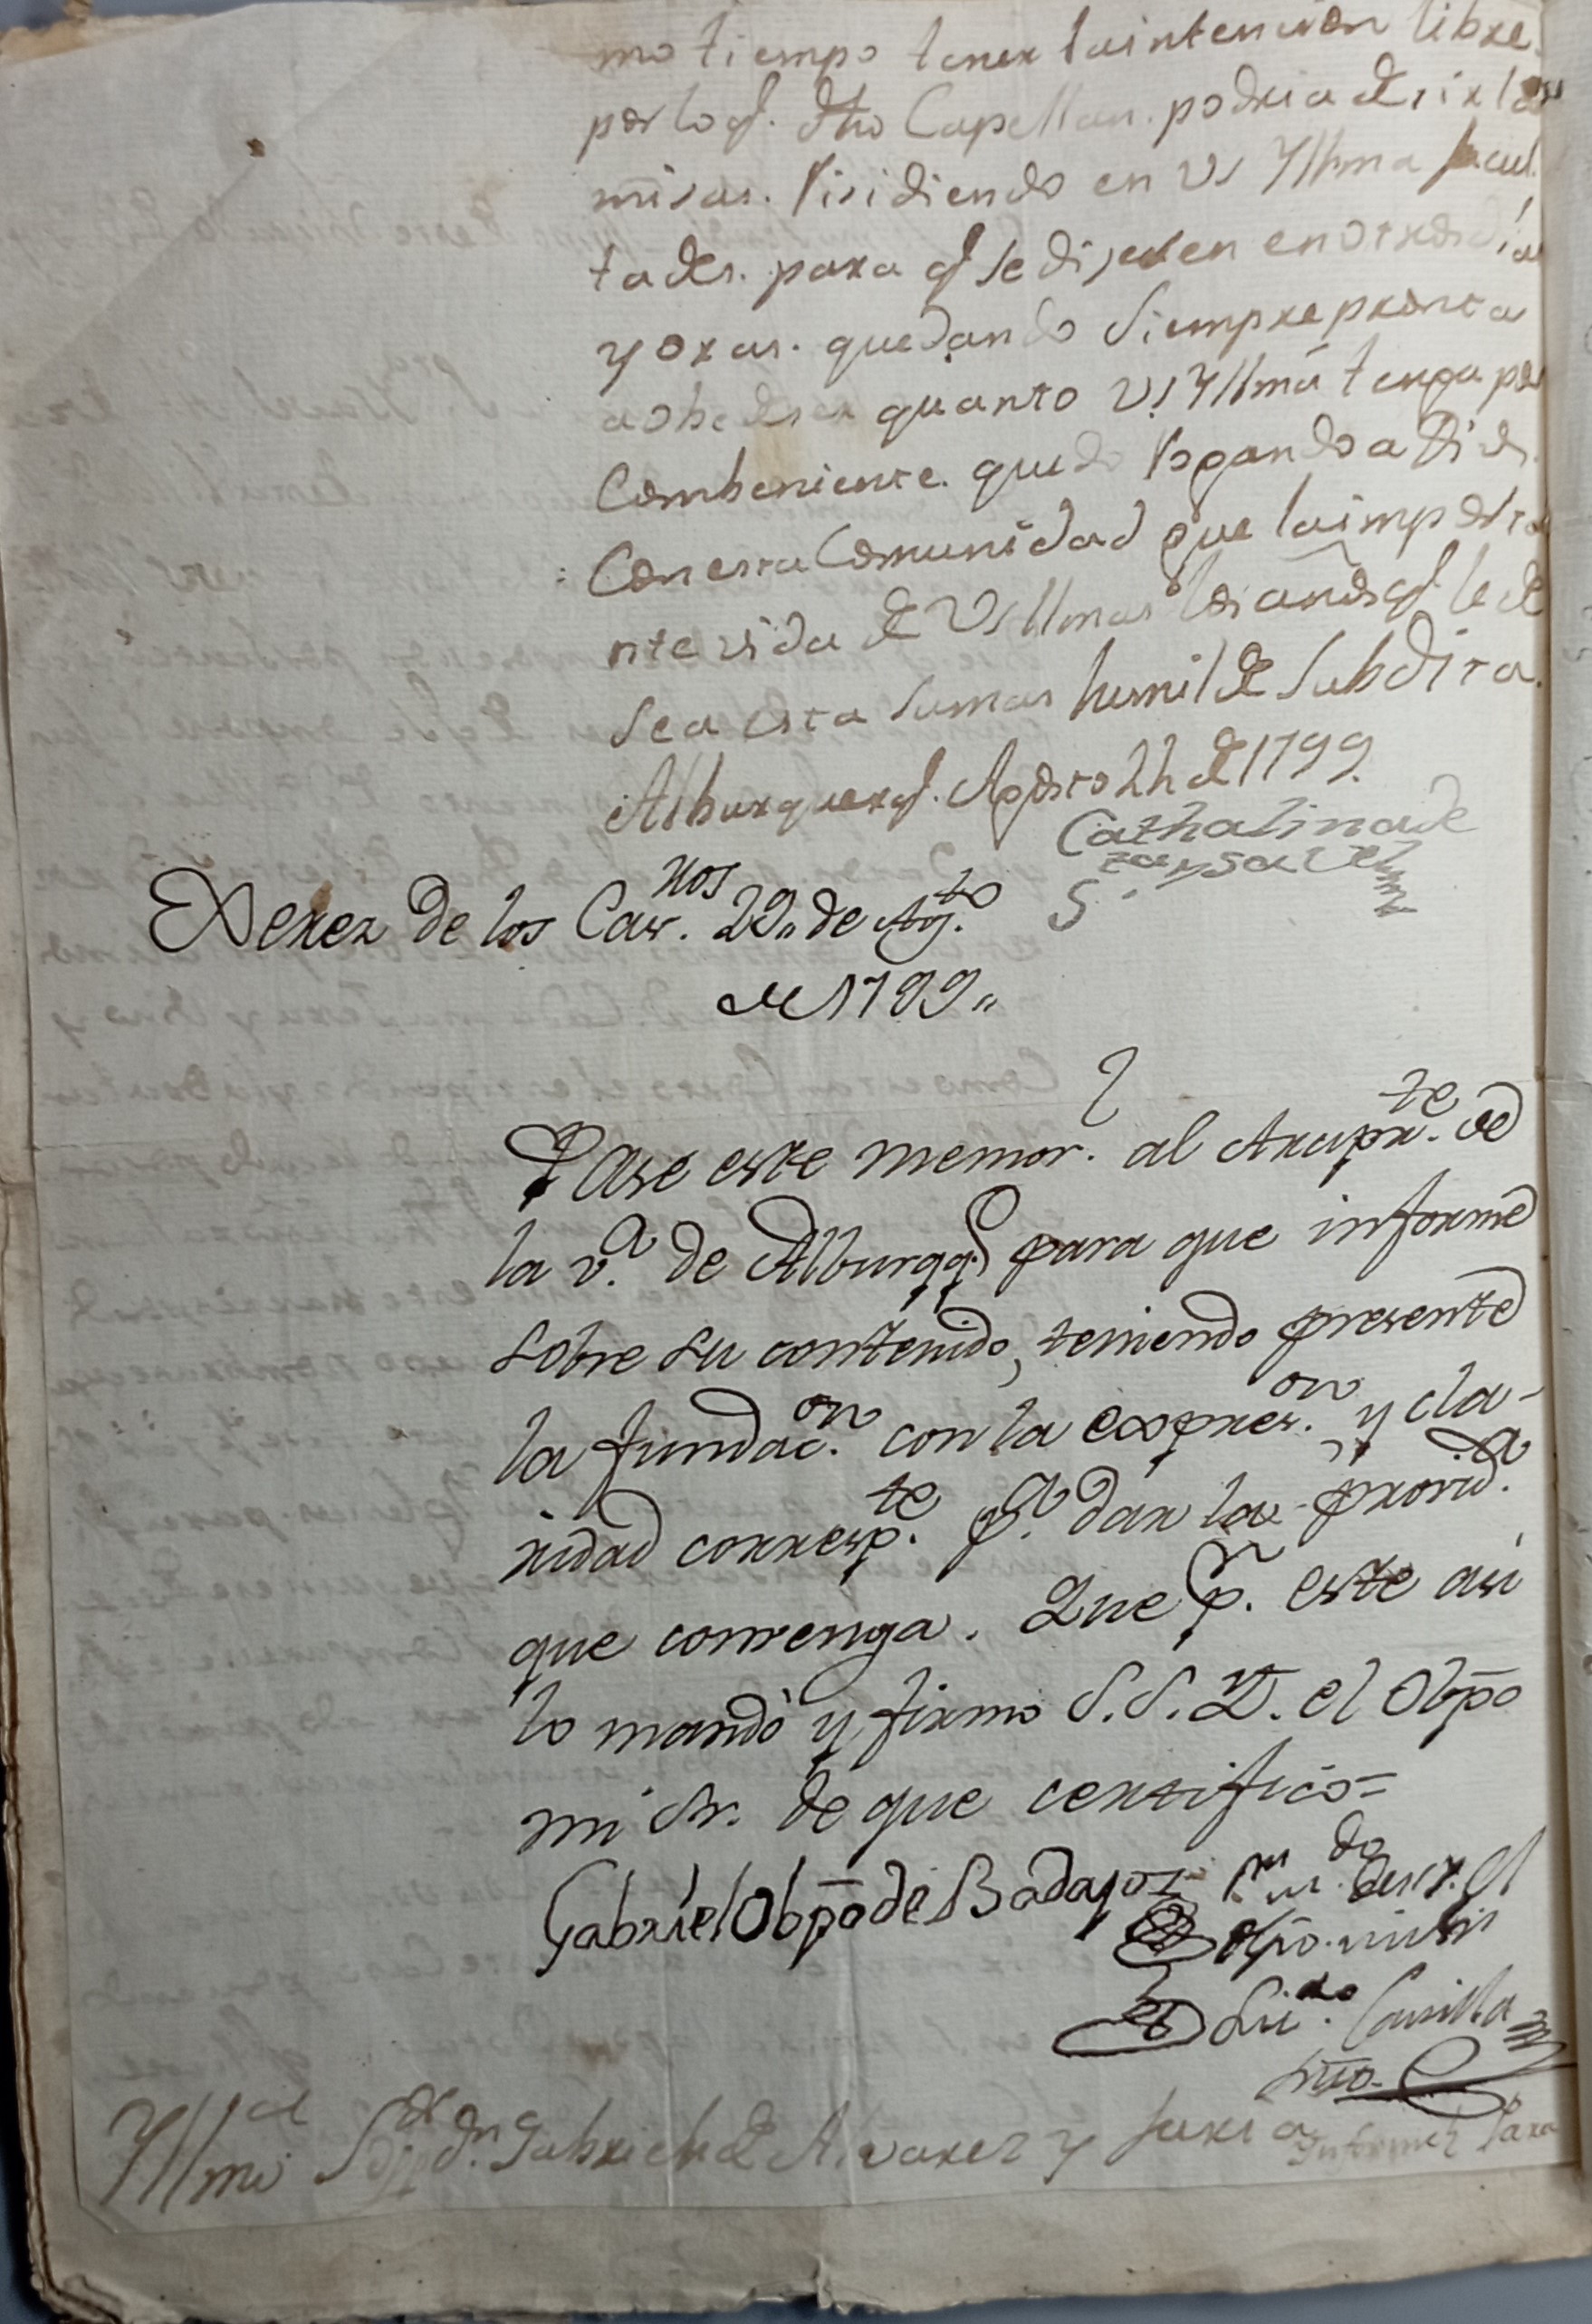 mo tiempo tener la intencion libre
por lo q. dho Capellan. podria desir las
misas. Risidiendo en VS Yllma facul
tades. para q se dijesen en otros dias
y oras. quedando siempre pronta
a obedeser quanto VS Yllma tenga por
Combeniente. quedo Rogando a Dios.
Con esta Comunidad que la importa
nte vida de VS Yllma los años q. le de
sea esta su mas humilde Subdita.
Alburquerq. Agosto 22 de 1799.
Cathalina de
S.
Xerez de los Cav.ros 29,, de Ag.to
de 1799,,
Pase este memor.l al Arcipr.te de
la v.a de Alburqq.e para que informe
sobre su contenido, teniendo presente
la fundac.on con la expres.on y cla-
ridad corresp.te p.a dar la provid.a
que convenga. Que p.r este asi
lo mandò y firmo S.S.Y. el Obpo
mi Sr. de que certifico=
Gabriel Obpo de Badajoz
Por m.do de S.S.Y. el
Obpo. mi Sr.
Lic.do Casilla
Srio.
Yllmo Sor dn. Gabriel de Alvarez y faria